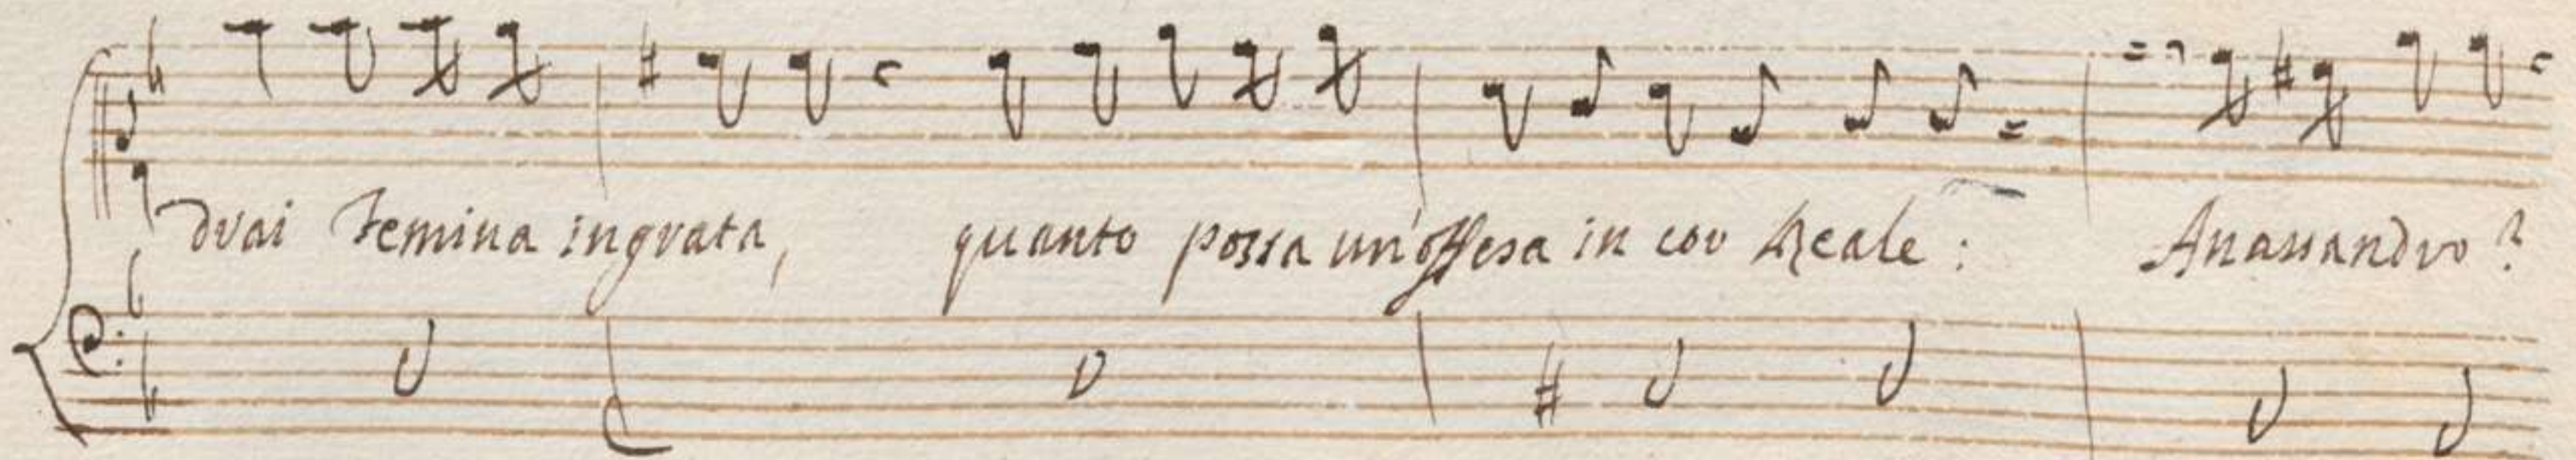 drai Femina ingrata, quanto possa un'offesa in cor Reale: Anassandro?